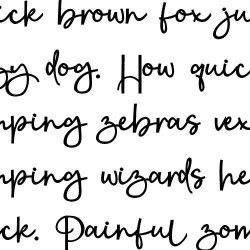 ick brown fox ju
zy dog. How quic
mping zebras vex
mping wizards he
ck. Painful zom